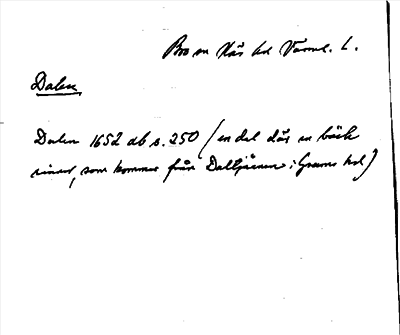 Bro sn Näs hd Värml. L.
Dalen
Dalen 1652 ab s. 250 (en del där en bäck
rinner, som kommer från Daltjärnen i Grums hd)